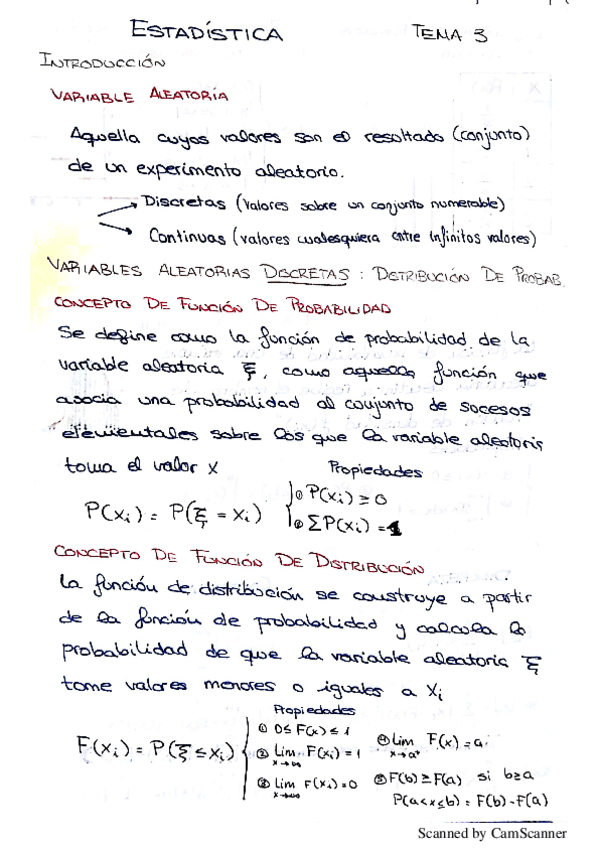 ESTADÍSTICA TEMA 3
INTRODUCCIÓN
VARIABLE ALEATORÍA
Aquella cuyos valores son el resultado (conjunto)
de un experimento aleatorio.
Discretas (valores sobre un conjunto numerable)
Continuas (valores cualesquiera entre infinitos valores)
VARIABLES ALEATORIAS DISCRETAS : DISTRIBUCIÓN DE PROBAB.
CONCEPTO DE FUNCIÓN DE PROBABILIDAD
Se define como la función de probabilidad de la
variable aleatoria ξ, como aquella función que
asocia una probabilidad al conjunto de sucesos
elementales sobre los que la variable aleatoria
toma el valor X
Propiedades
P(xᵢ) = P(ξ = xᵢ)
① P(xᵢ) ≥ 0
② ΣP(xᵢ) = 1
CONCEPTO DE FUNCIÓN DE DISTRIBUCIÓN
La función de distribución se construye a partir
de la función de probabilidad y calcula la
probabilidad de que la variable aleatoria ξ
tome valores menores o iguales a Xᵢ
Propiedades
F(xᵢ) = P(ξ ≤ xᵢ)
① 0 ≤ F(x) ≤ 1
② Lim F(xᵢ) = 1
③ Lim F(xᵢ) = 0
④ Lim F(x) = a
x→a⁺
⑤ F(b) ≥ F(a) si b≥a
P(a<x≤b) = F(b) - F(a)
Scanned by CamScanner